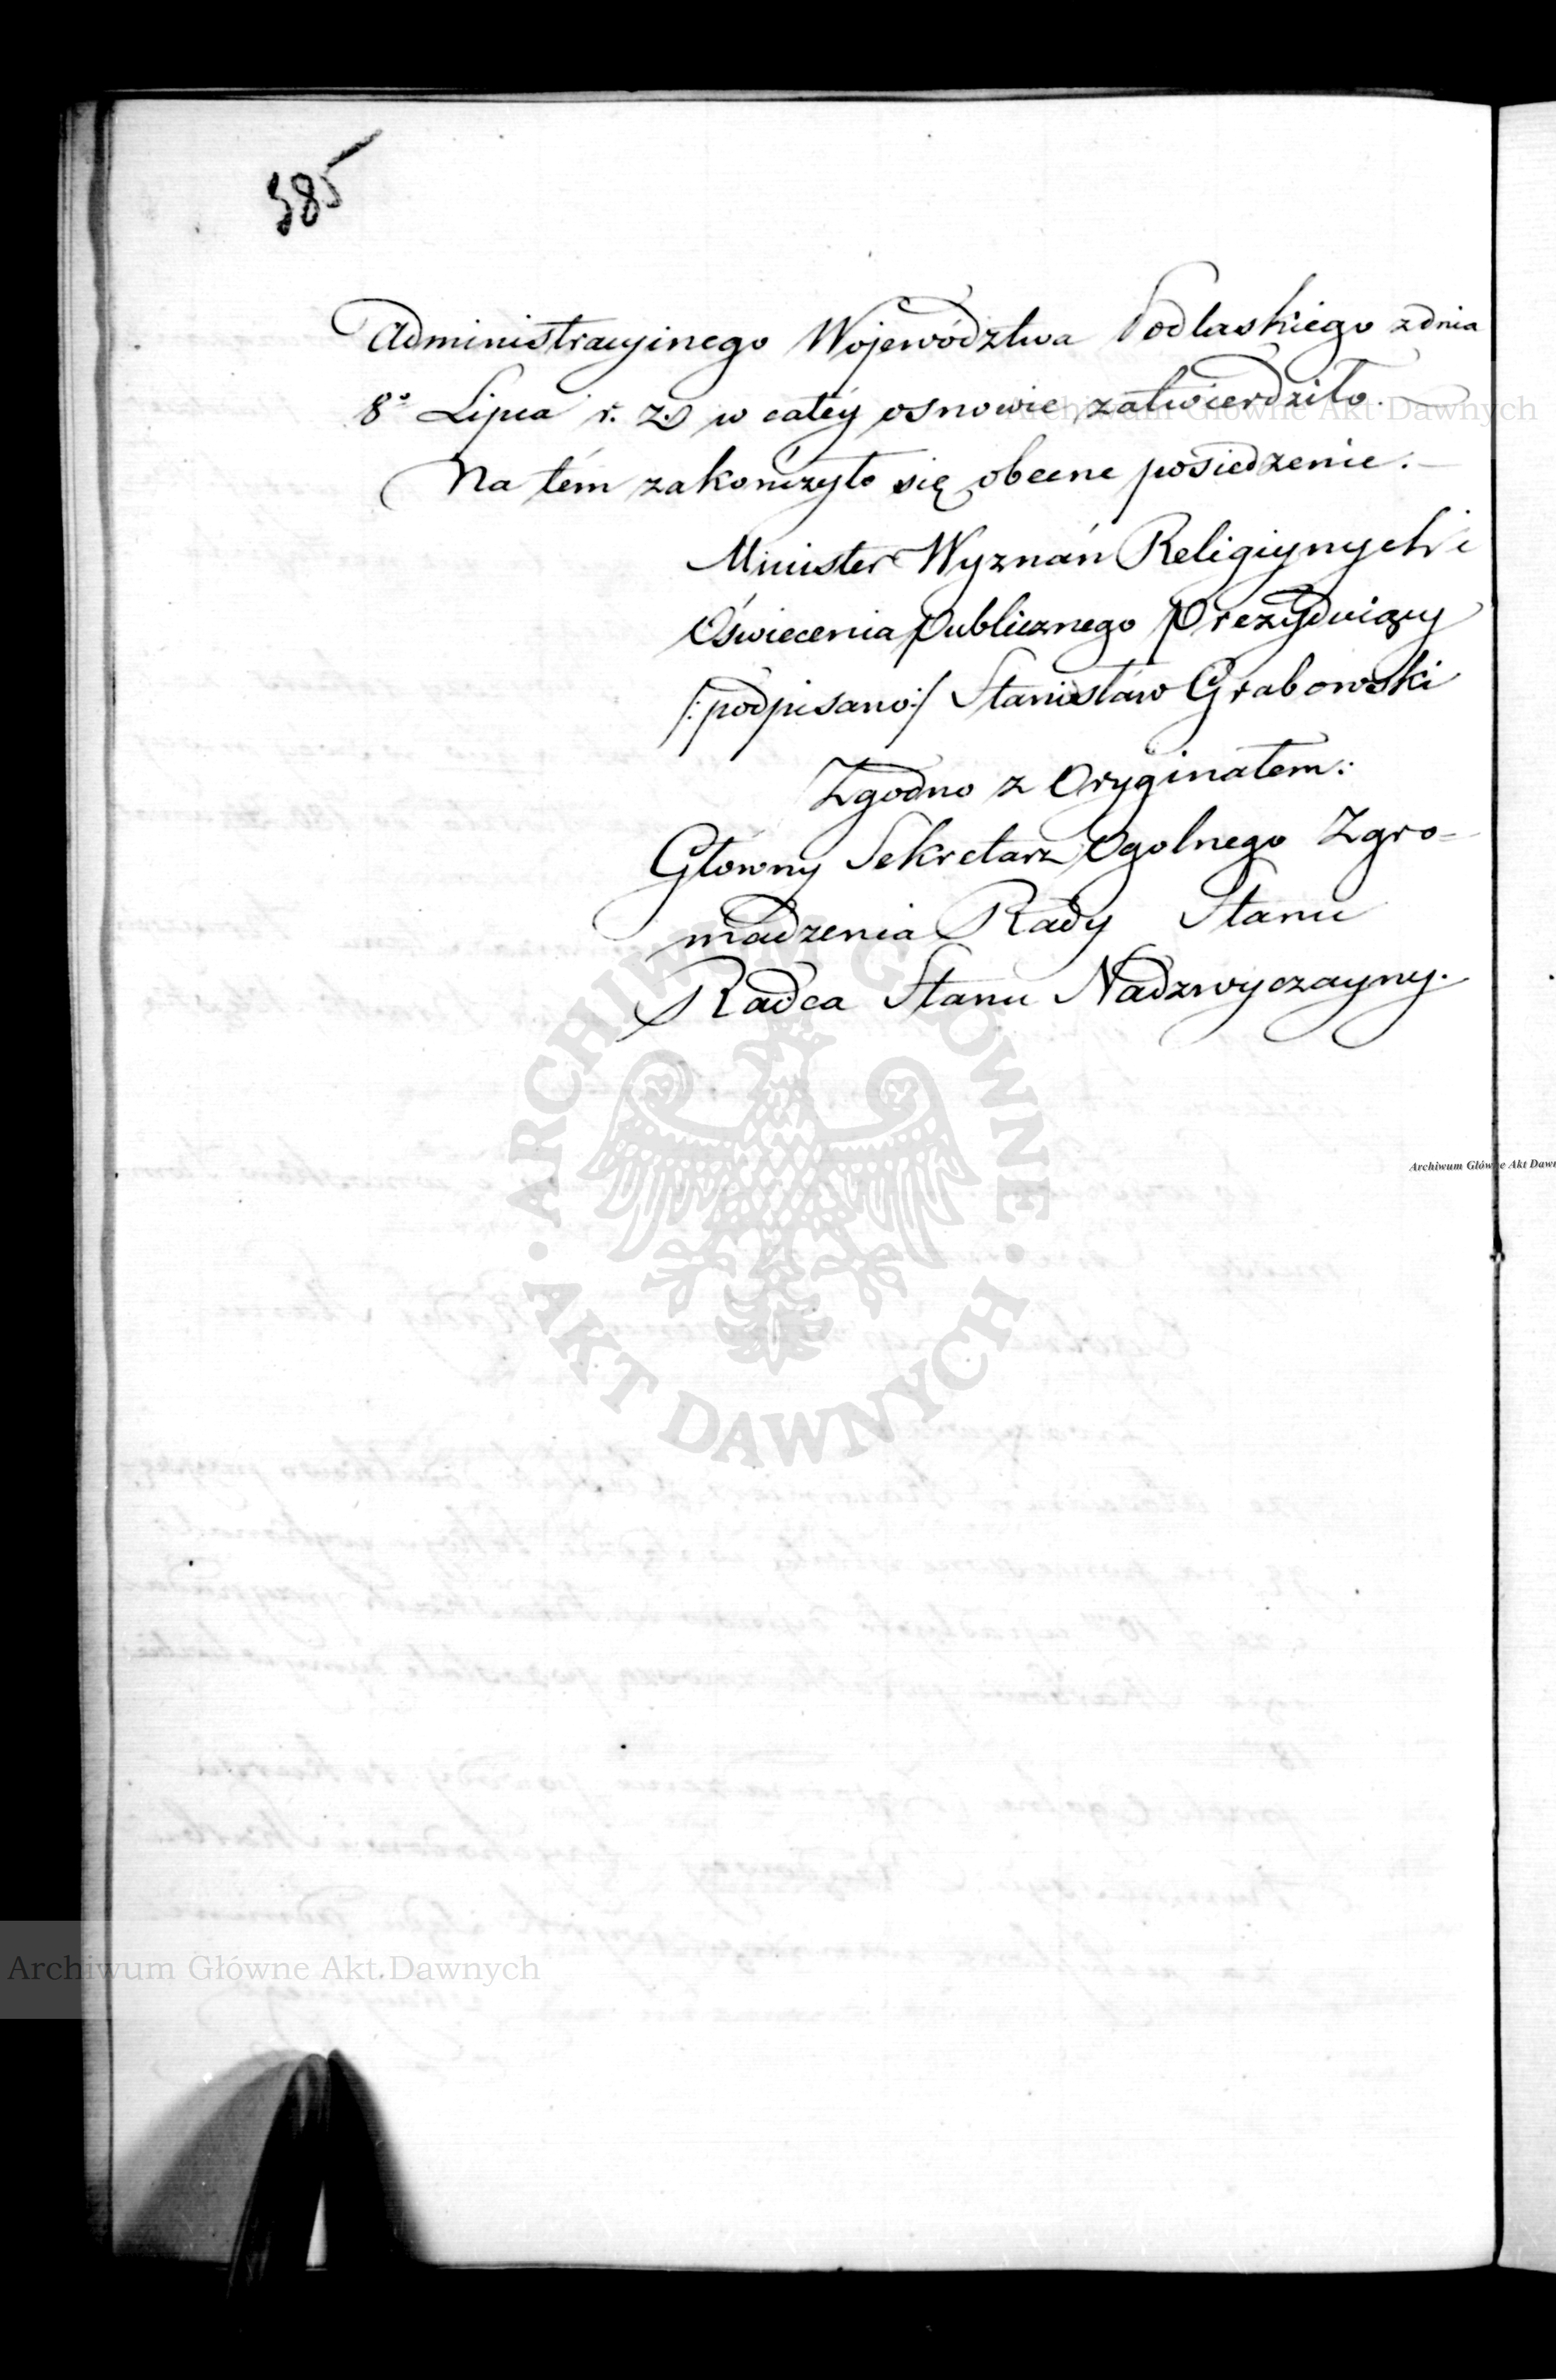 585
Administracyinego Województwa Podlaskiego z dnia
8º Lipca r. z. w całéy osnowie zatwierdziło.—
Na tém zakończyło się obecne posiedzenie.—
Minister Wyznań Religiynych i
Oświecenia Publicznego Prezyduiący
/:podpisano:/ Stanisław Grabowski
Zgodno z Oryginałem:
Główny Sekretarz Ogolnego Zgro-
madzenia Rady Stanu
Radca Stanu Nadzwyczayny.
Archiwum Główne Akt Dawnych
ARCHIWUM GŁÓWNE AKT DAWNYCH
Archiwum Główne Akt Dawn
Archiwum Główne Akt Dawnych